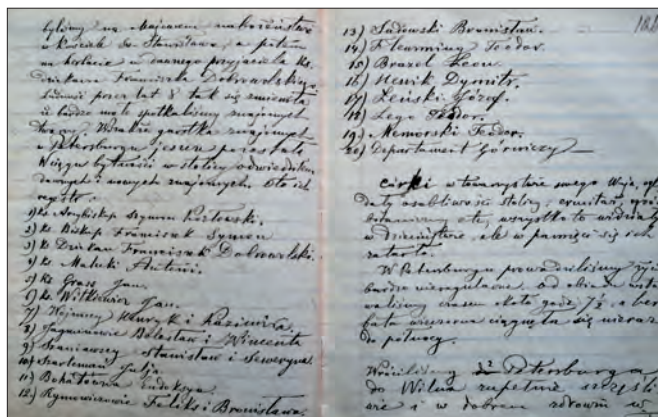 byliśmy na Majowem nabożeństwie
w Kościele Św. Stanisława, a potem
na herbacie u dawnego przyjaciela Ks.
Dziekana Franciszka Dobrowolskiego.
przez lat 8 tak się zmieniła
iż bardzo mało spotkaliśmy znajomych
garstka znajomych
w Petersburgu jeszcze pozostała
W ciągu bytności w stolicy
dawnych i nowych znajomych. Oto ich
rejestr:
1) Ks. Arcybiskup Szymon Kozłowski.
2) Ks. Biskup Franciszek Symon
3) Ks. Dziekan Franciszek Dobrowolski.
4) Ks. Malecki Antoni.
5) Ks. Grass Jan.
6) Ks. Witkiewicz Jan.
7) Wojniccy Henryk i Kazimiera.
8) Jagminowie Bolesław i Wincenta
9) Staniawscy Stanisław i Seweryna.
10) Szarleman Julja.
11) Bohatówna Eudoksya.
12) Rymowiczowie Feliks i Bronisława.
13) Sadowski Bronisław.
14) Fleurming Teodor.
15) Brazol Leon.
16) Henik Dymitr.
17) Leński Józef.
18) Lego Teodor.
19) Memorski Teodor.
20) Departament Górniczy —
Córki w towarzystwie swego Wuja,
dały osobliwości stolicy:
wszystko to widziały
w dzieciństwie, ale w pamięci się ich
zatarło.
W Petersburgu prowadziliśmy życie
bardzo nieregularne. Od obiadu
czasem około godz.
bata wieczorna ciągnęła się nieraz
do północy.
Wróciliśmy z Petersburga
do Wilna zupełnie szczęśli
wie i w dobrem zdrowiu w